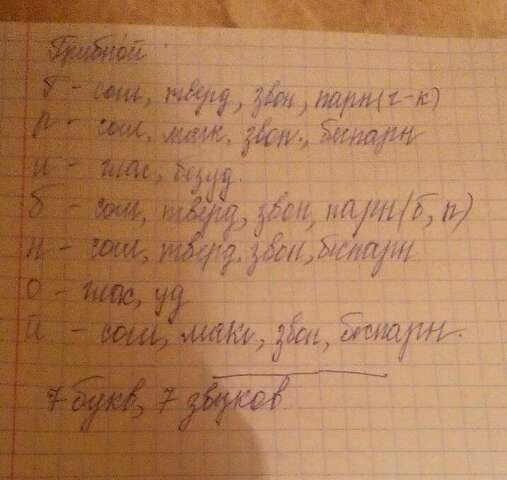 Грибно́й
Г - согл, тверд, звон, парн (г-к)
р - согл, мягк, звон., беспарн
и - глас, безуд.
б - согл, тверд, звон, парн (б, п)
н - согл, тверд. звон, беспарн
о - глас, уд
й - согл, мягк, звон, беспарн.
7 букв, 7 звуков